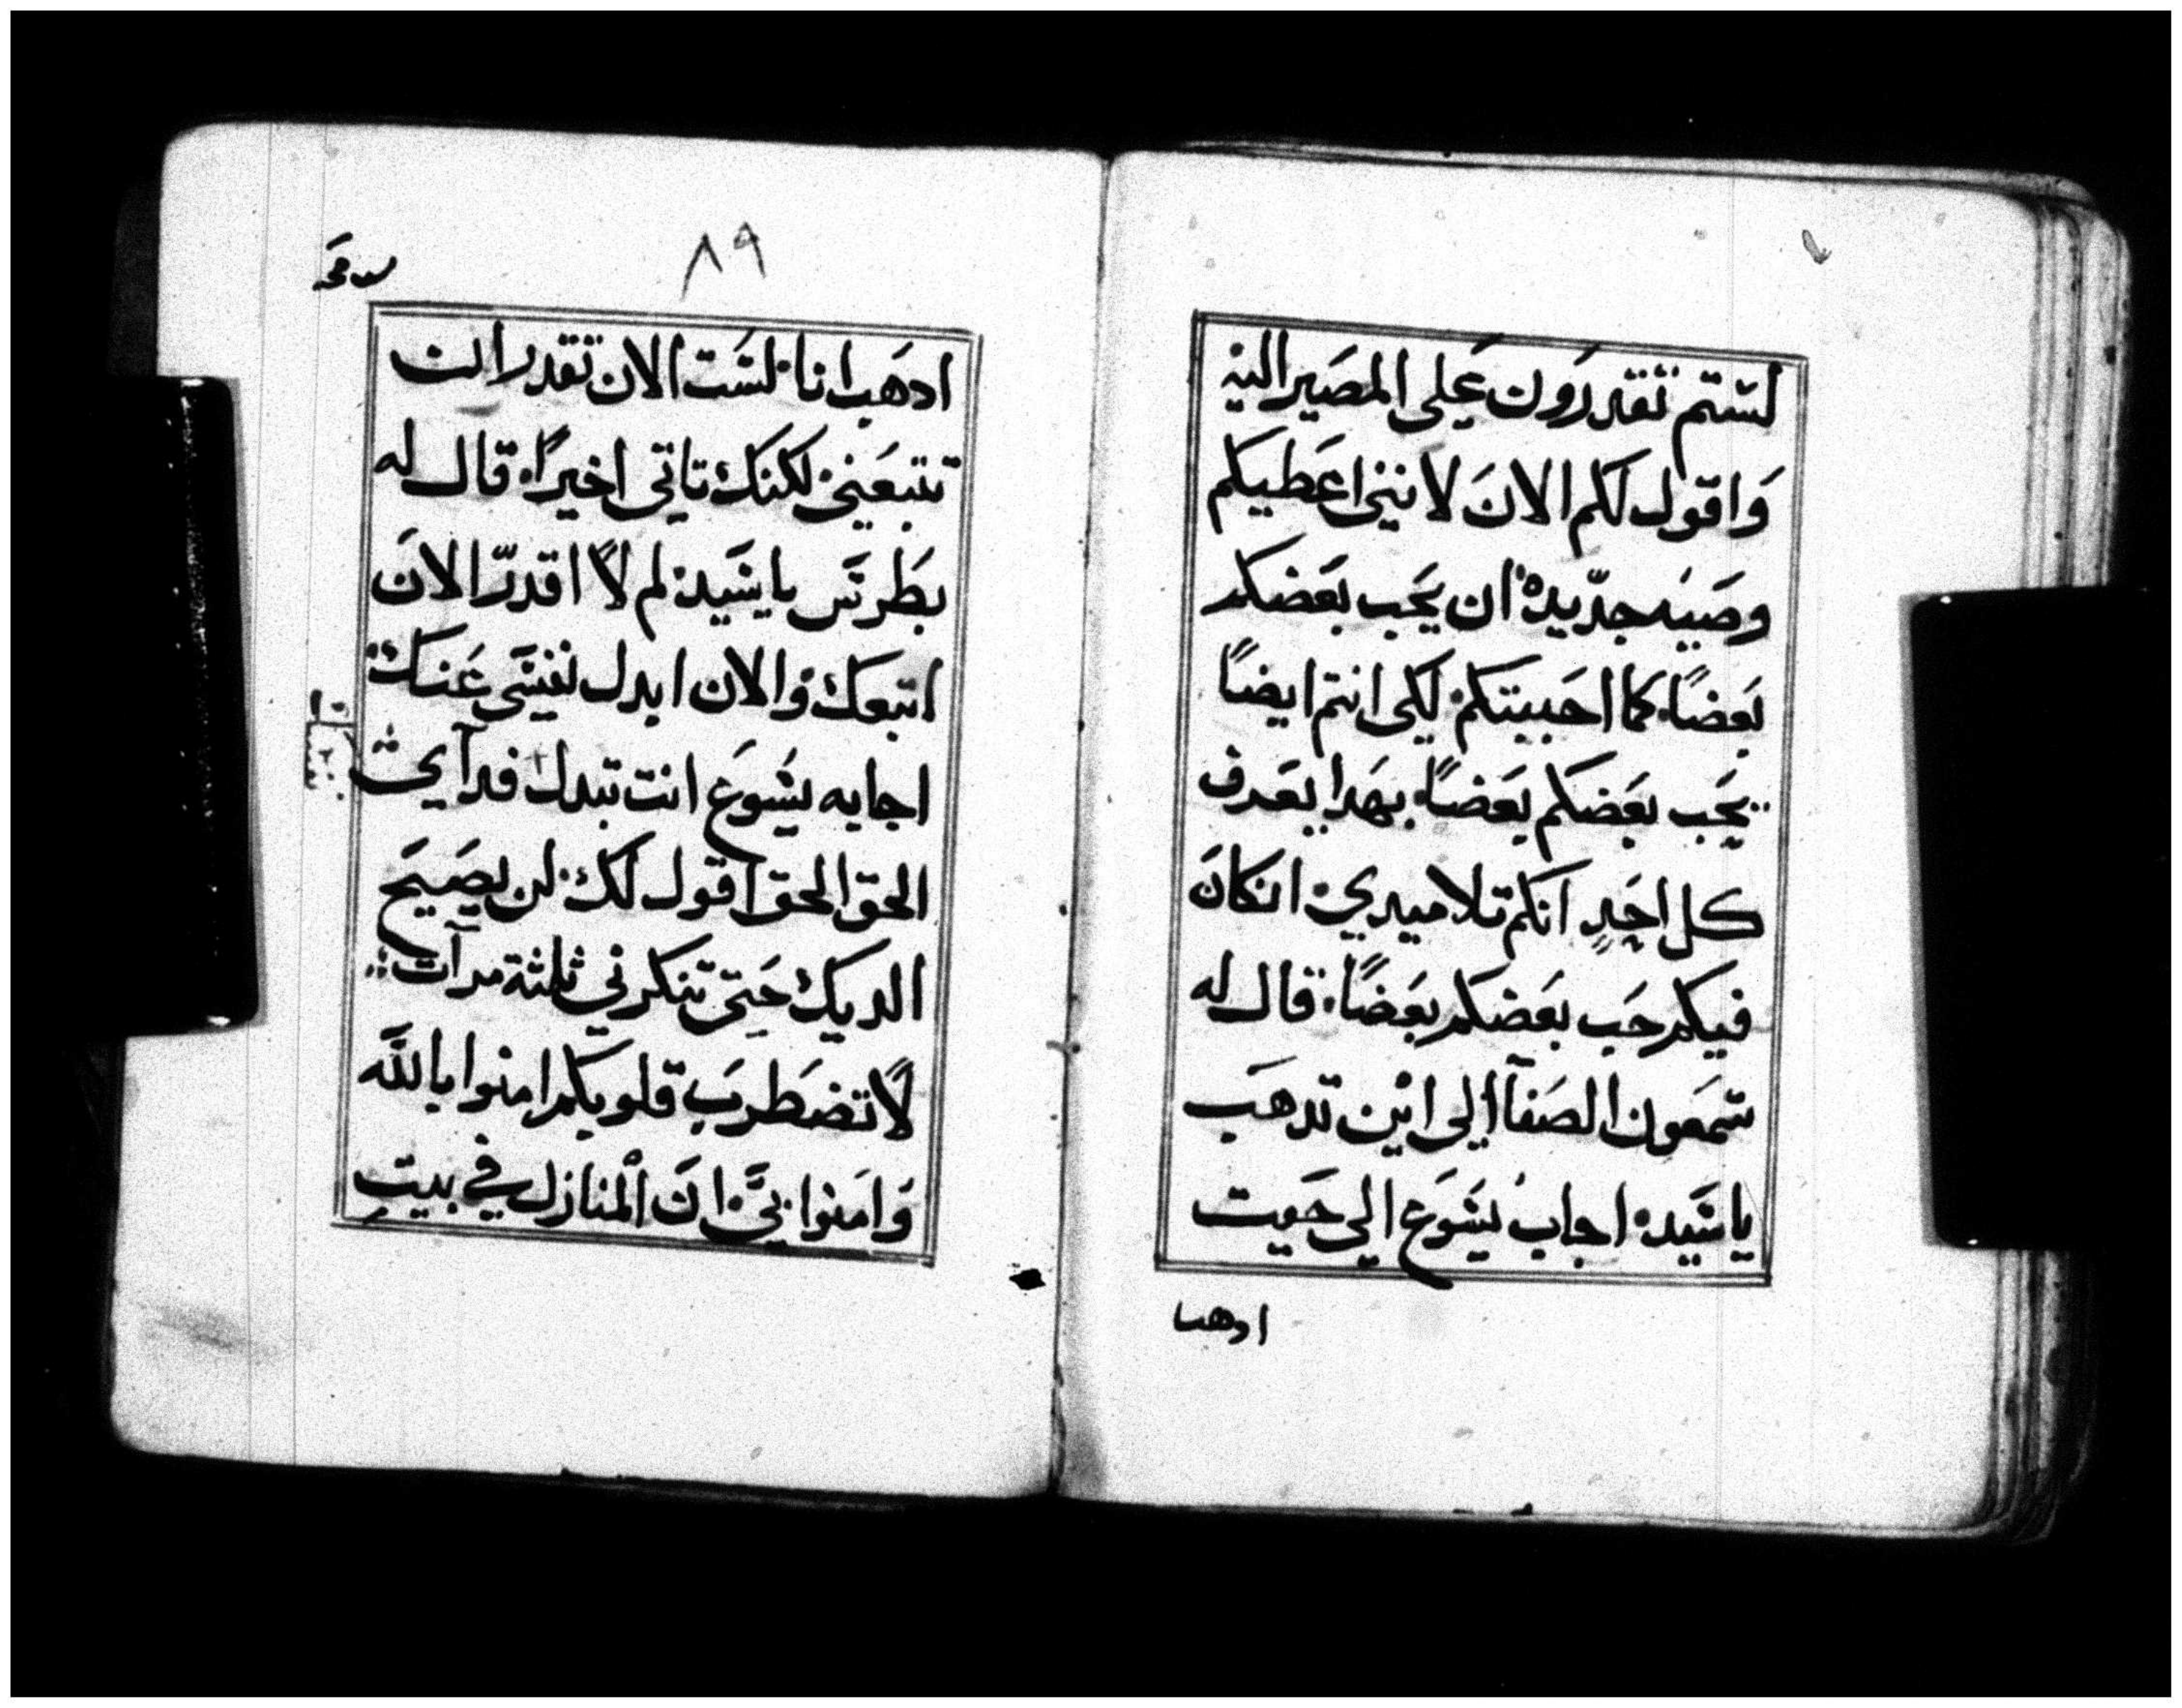 لستم تقدرون على المصير اليه
وَاقول لكم الانَ لانني اعَطيكم
وصَيه جدّيده ان يحَب بعَضكم
بَعضاً كما احَببتكم لكى انتم ايضاً
يحَب بعَضكم بعَضاً بهَدا يعَرف
كل احَدٍ انكم تلاميدي انكانَ
فيكم حَب بعَضكم بعَضاً قال له
شمعَون الصَفآ الى اين تدهَب
ياسَيد اجاب يسَوع الى حَيت
ادهب
٨٩
ادهَب انا لسَت الان تقدر انت
تتبعَني لكنك تاتى اخيراً قال له
بطَرسَ ياسَيد لم لا اقدرّ الانَ
اتبعَك والان ابدل نفسَى عَنك
اجابه يسَوعَ انت تبدل فدآيى
الحق الحق اقول لك لن يصَيحَ
الديك حَتى تنكرني ثلثة مرآت
لا تضَطرب قلوبكم امنوا باللّه
وَامَنوا بيَ انَ المنازل في بيت